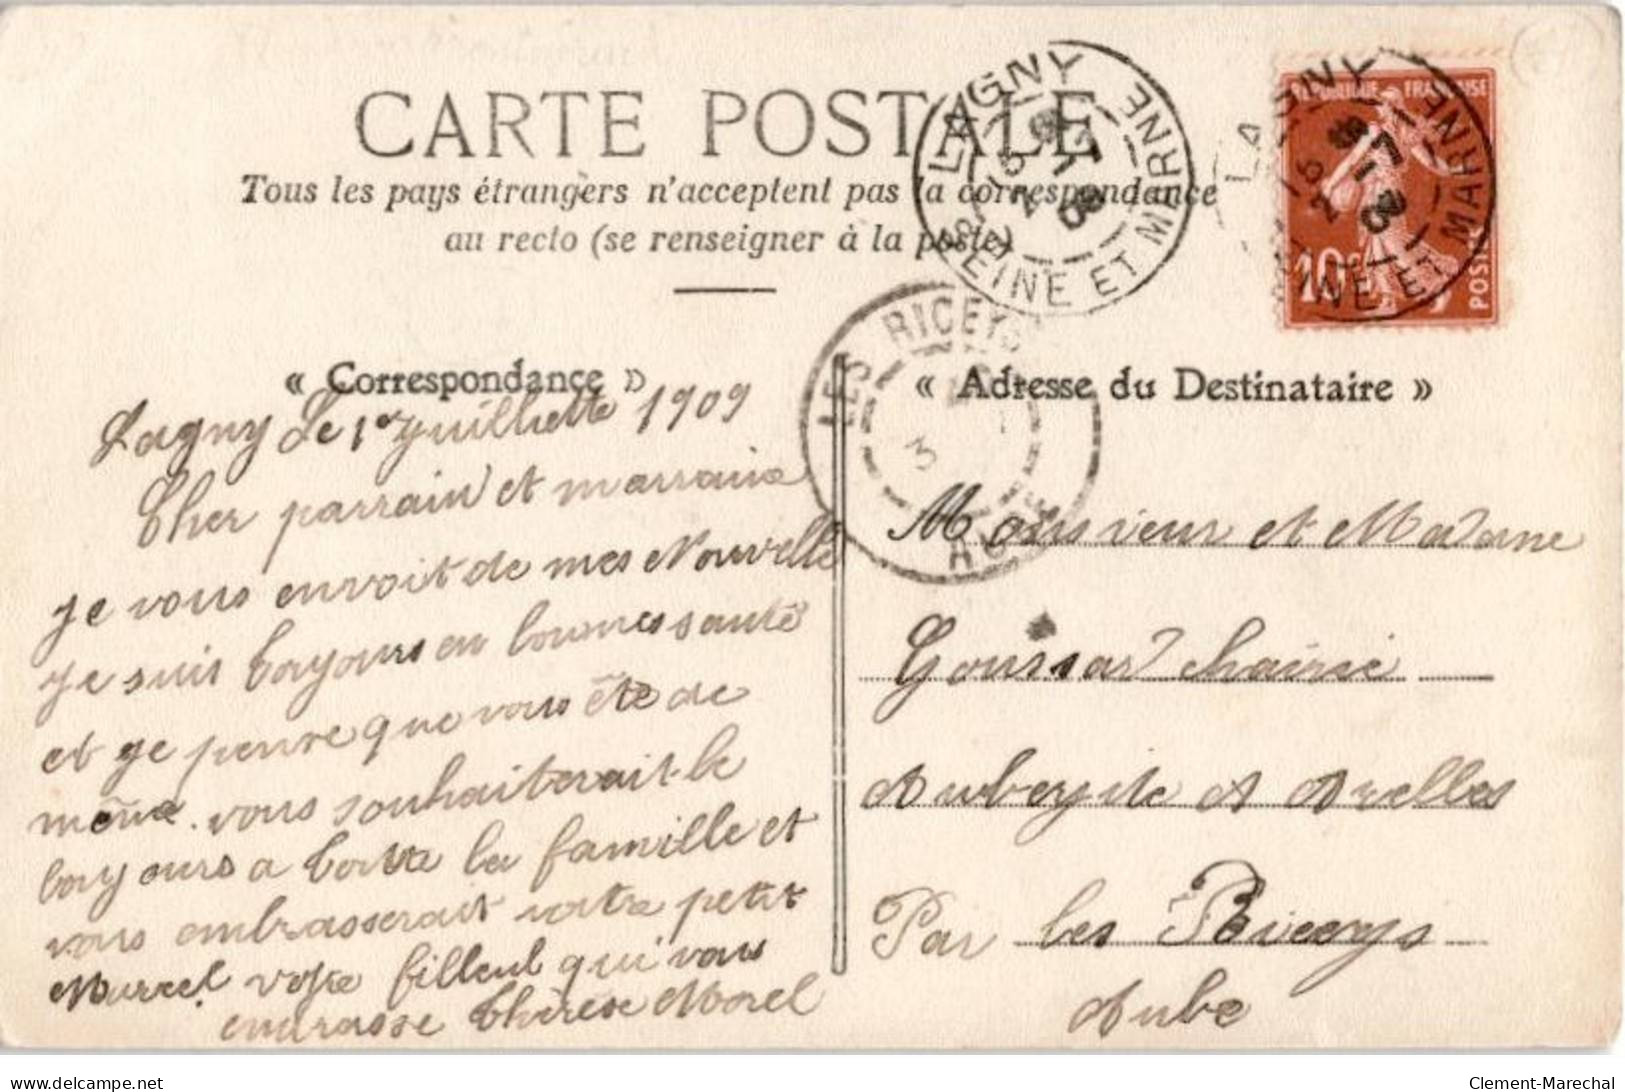 CARTE POSTALE
Tous les pays étrangers n'acceptent pas la correspondance
au recto (se renseigner à la poste)
LAGNY
SEINE ET MARNE
LAGNY
SEINE ET MARNE
REPUBLIQUE FRANÇAISE
10c
POSTES
LES RICEYS
AUBE
« Correspondance »
Lagny Le 1er Juilliette 1909
Cher parrain et marraine
je vous envoit de mes Nouvelle
je suis toujours en bonnes santé
et je pense que vous ête de
même. vous souhaiterait le
toujours a toute la famille et
vous embrasserait votre petit
Marcel votre filleul qui vous
embrasse Thérèse Morel
« Adresse du Destinataire »
Monsieur et Madame
Goussard
A Arelles
Par les Riceys
Aube
Clement-Marechal